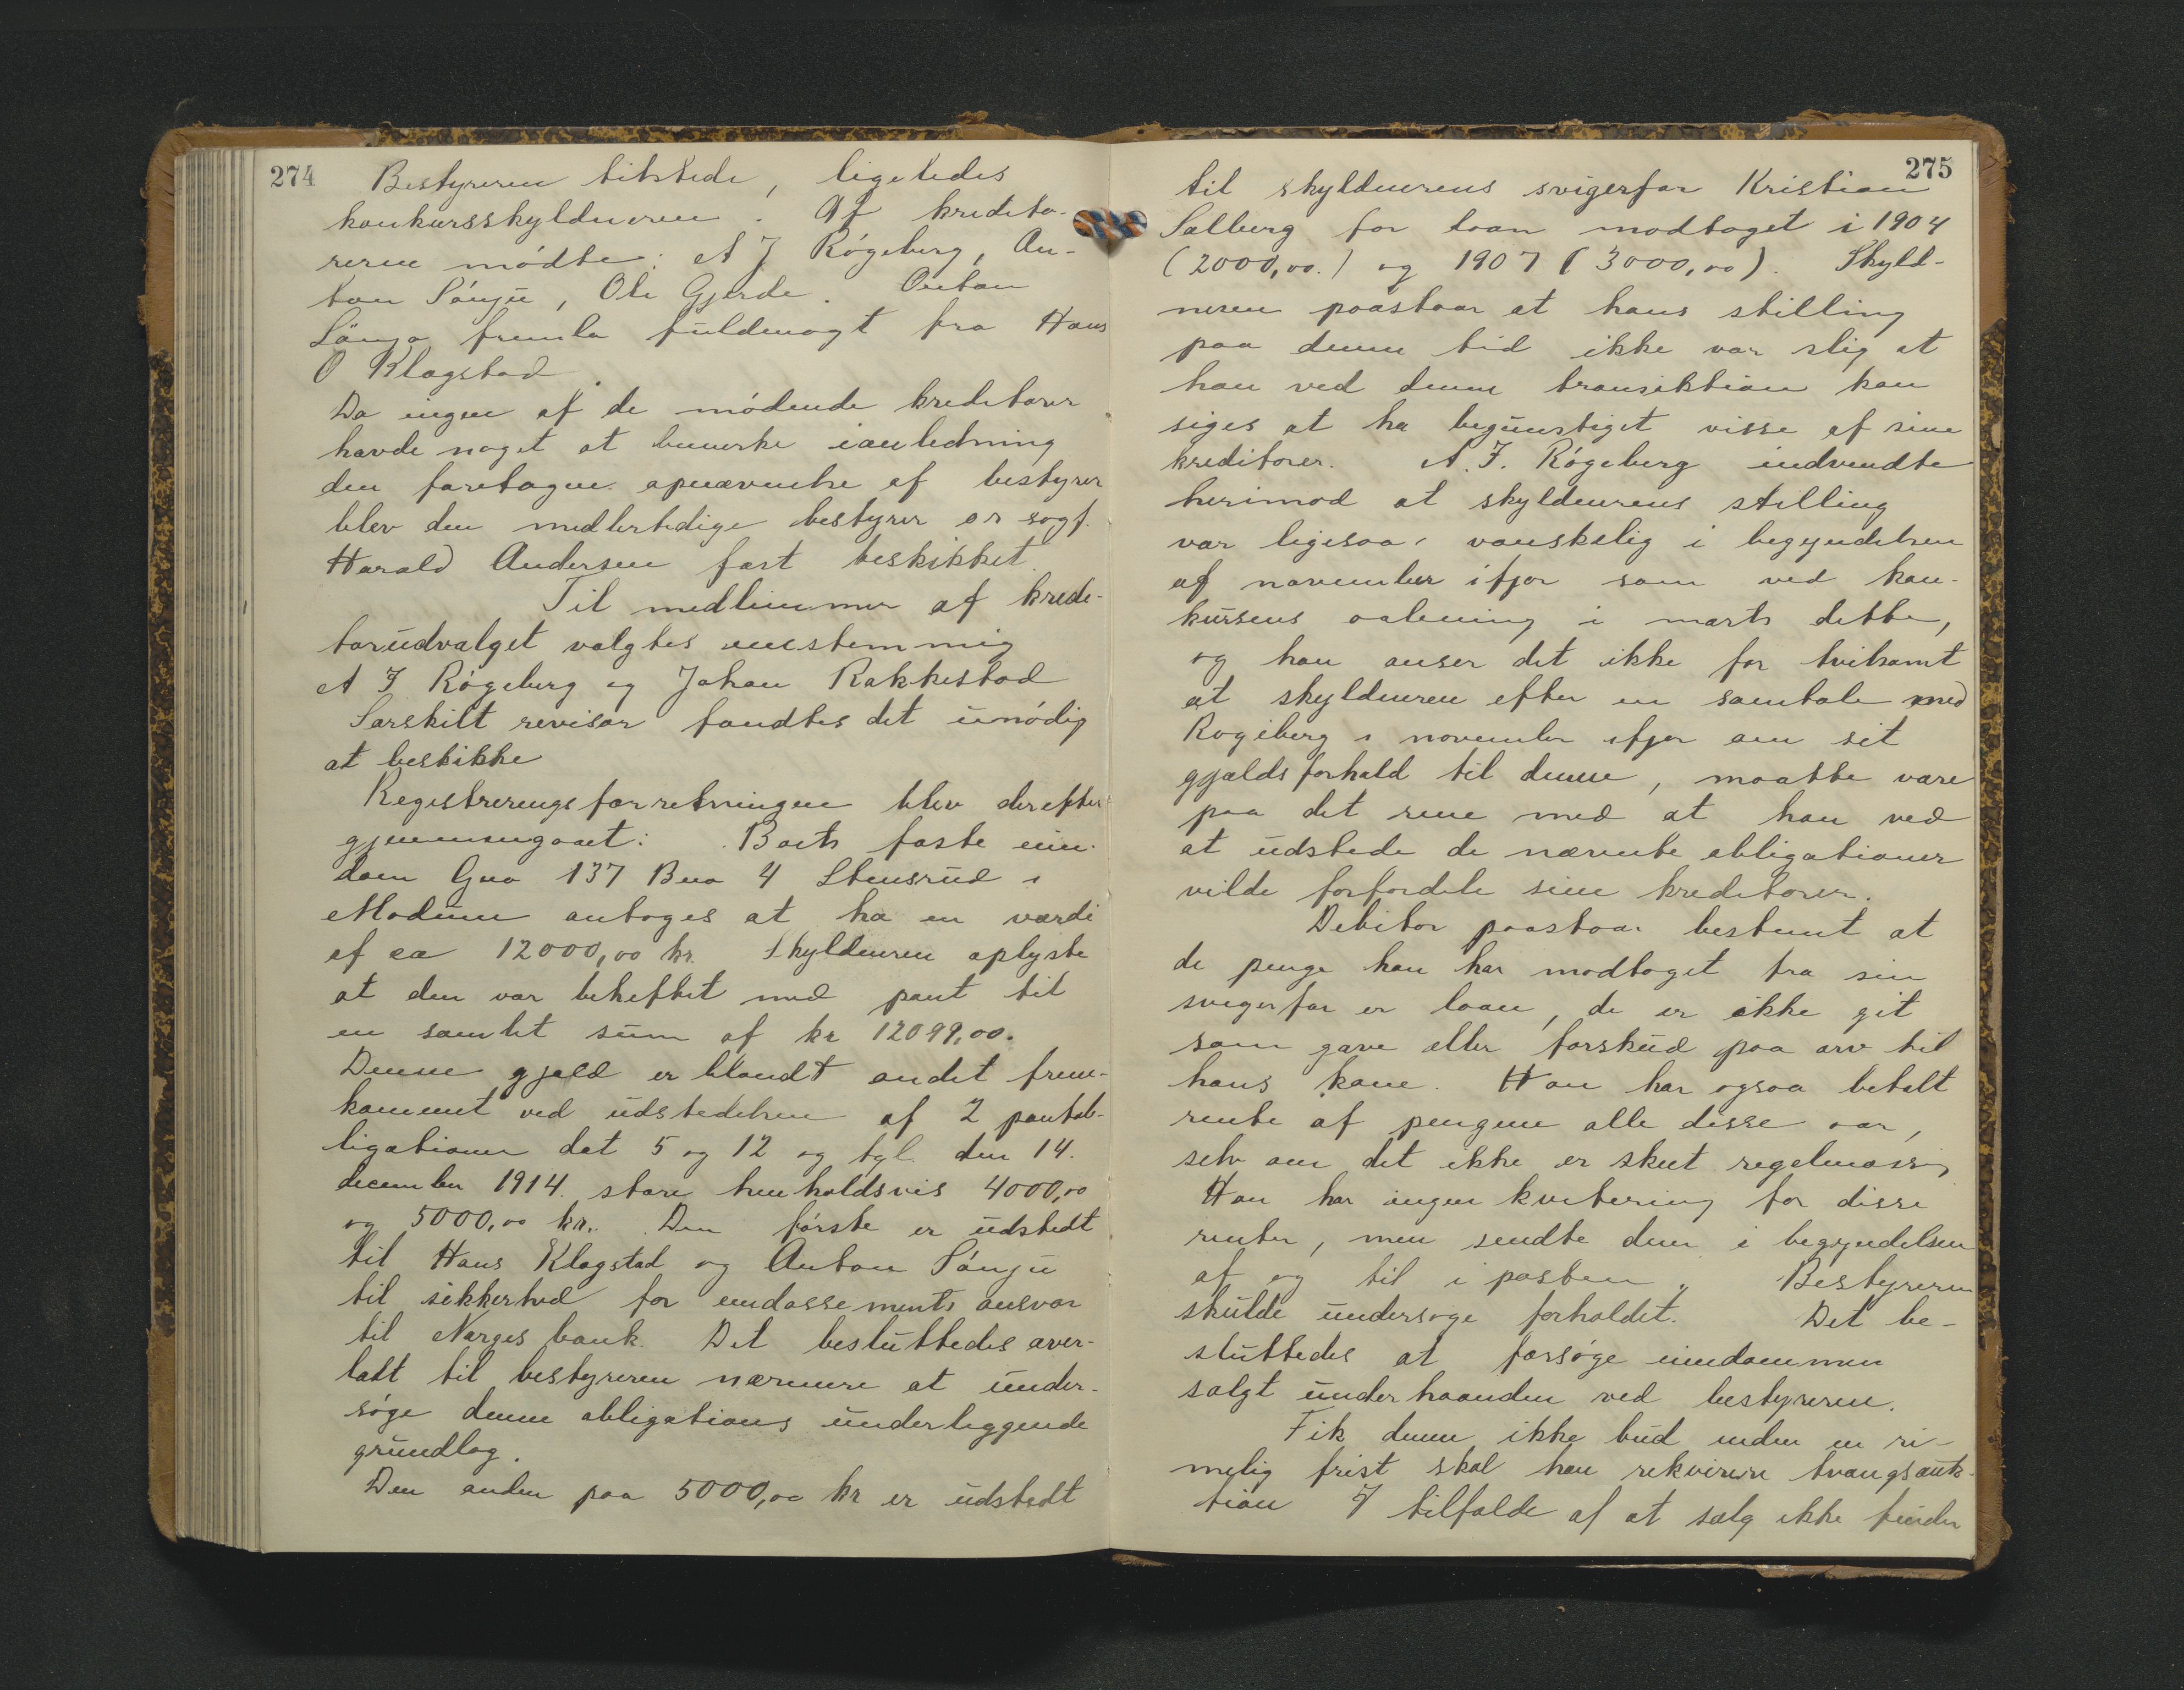 274
Bestyreren tilstede, ligeledes
konkursskyldneren. Af kredito-
rerne mödte: A J Rögeberg, An-
ton Sönju, Ole Gjerde. Anton
Sönjo fremla fuldmagt fra Hans
O Klagstad.
Da ingen af de mödende kreditorer
havde noget at bemerke i anledning
den foretagne opnævnelse af bestyrer
blev den midlertidige bestyrer o r sagf.
Harald Andersen fast beskikket.
Til medlemmer af kredi-
torudvalget valgtes enstemmig
A J Rögeberg og Johan Rakkestad
Særskilt revisor fandtes det unödig
at beskikke
Registreringsforretningen blev derefter
gjennemgaaet: Boets faste eien-
dom Gno 137 Bno 4 Stensrud i
Modum antoges at ha en værdi
af ca 12000,00 kr. Skyldneren oplyste
at den var beheftet med pant til
en samlet sum af kr 12099,00.
Denne gjæld er blandt andet frem-
kommet ved udstedelsen af 2 pantob-
ligationer dat 5 og 12 og tgl. den 14.
december 1914. store henholdsvis 4000,00
og 5000,00 kr. Den förste er udstedt
til Hans Klagstad og Anton Sönju
til sikkerhed for endossements ansvar
til Norges bank. Det besluttedes over-
latt til bestyreren nærmere at under-
söge denne obligations underliggende
grundlag.
Den anden paa 5000,00 kr er udstedt
275
til skyldnerens svigerfar Kristian
Solberg for laan modtaget i 1904
(2000,00.) og 1907 (3000,00). Skyld-
neren paastaar at hans stilling
paa denne tid ikke var slig at
han ved denne transaktion kan
siges at ha begunstiget visse af sine
kreditorer. A. J. Rögeberg indvendte
herimod at skyldnerens stilling
var ligesaa vanskelig i begyndelsen
af november ifjor som ved kon-
kursens aabning i marts dette,
og han anser det ikke for tvilsamt
at skyldneren efter en samtale med
Rogeberg i november ifjor om sit
gjældsforhold til denne, maatte være
paa det rene med at han ved
at udstede de nævnte obligationer
vilde forfordele sine kreditorer.
Debitor paastaar bestemt at
de penge han har modtaget fra sin
svigerfar er laan, de er ikke git
som gave eller forskud paa arv til
hans kone. Han har ogsaa betalt
rente af pengene alle disse aar,
selv om det ikke er skeet regelmæssig
Han har ingen kvitering for disse
renter, men sendte dem i begyndelsen
af og til i posten. Bestyreren
skulde undersøge forholdet. Det be-
sluttedes at forsöge eiendommen
solgt underhaanden ved bestyreren.
Fik denne ikke bud inden en ri-
melig frist skal han rekvirere tvangsauk-
tion I tilfælde af at salg ikke finder